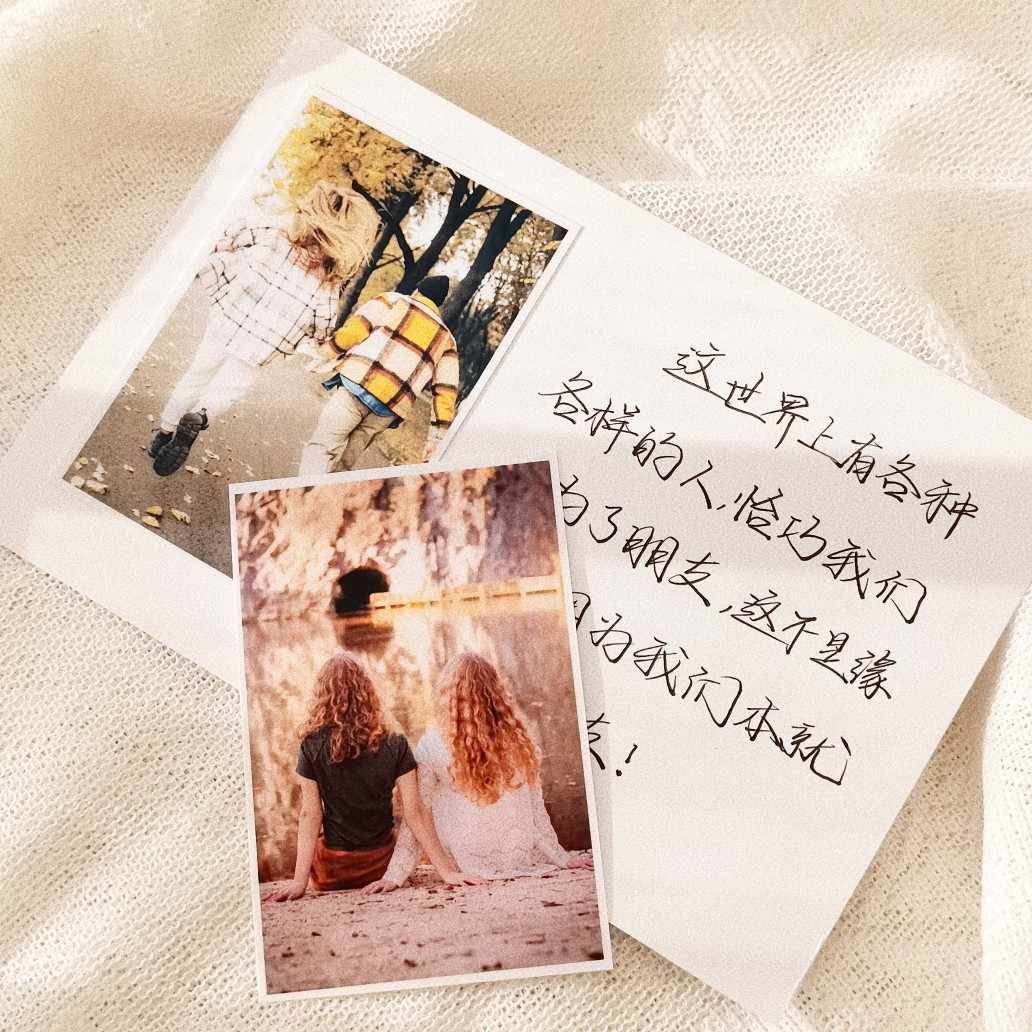 这世界上有各种
各样的人,恰巧我们
为了朋友,这不是缘
因为我们本就
友!